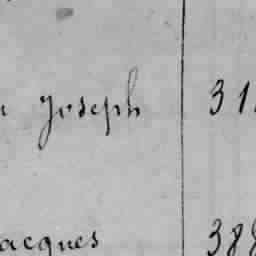 Joseph 31
acques 388